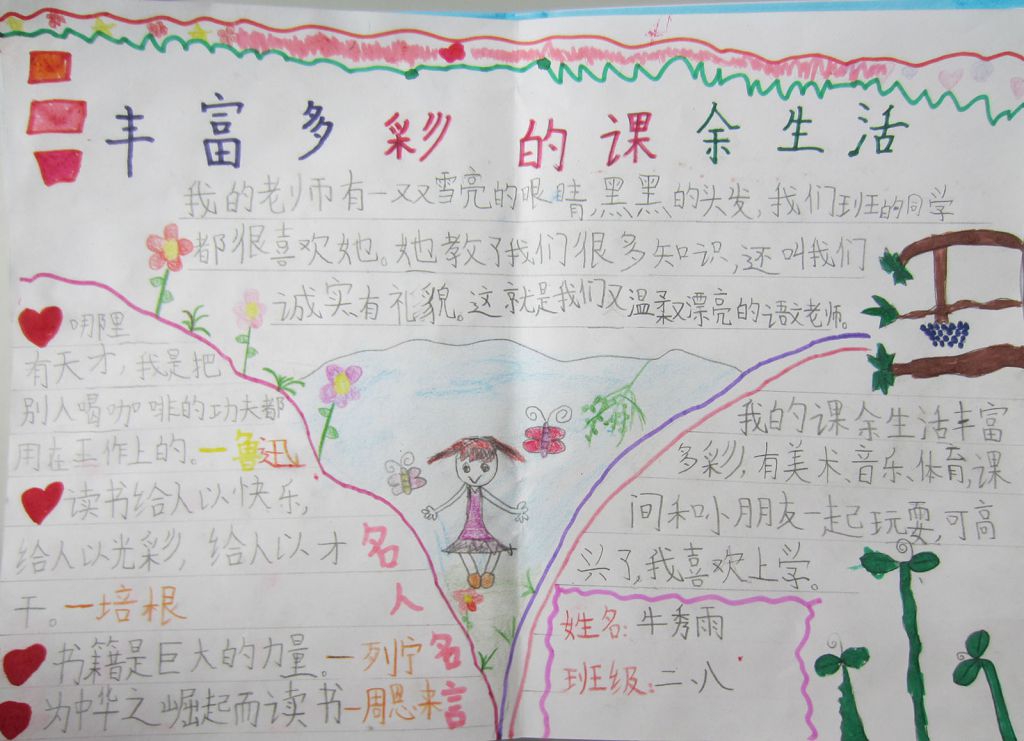 丰富多彩的课余生活
我的老师有一双又雪亮的眼睛,黑黑的头发,我们班的同学
都很喜欢她。她教了我们很多知识,还叫我们
诚实有礼貌。这就是我们又温柔又漂亮的语文老师。
哪里
有天才,我是把
别人喝咖啡的功夫都
用在工作上的。一鲁迅
读书给人以快乐,
给人以光彩,给人以才
干。一培根
书籍是巨大的力量。一列宁
为中华之崛起而读书一周恩来
名人名言
我的课余生活丰富
多彩,有美术、音乐、体育,课
间和小朋友一起玩耍,可高
兴了,我喜欢上学。
姓名:牛秀雨
班级:二、八